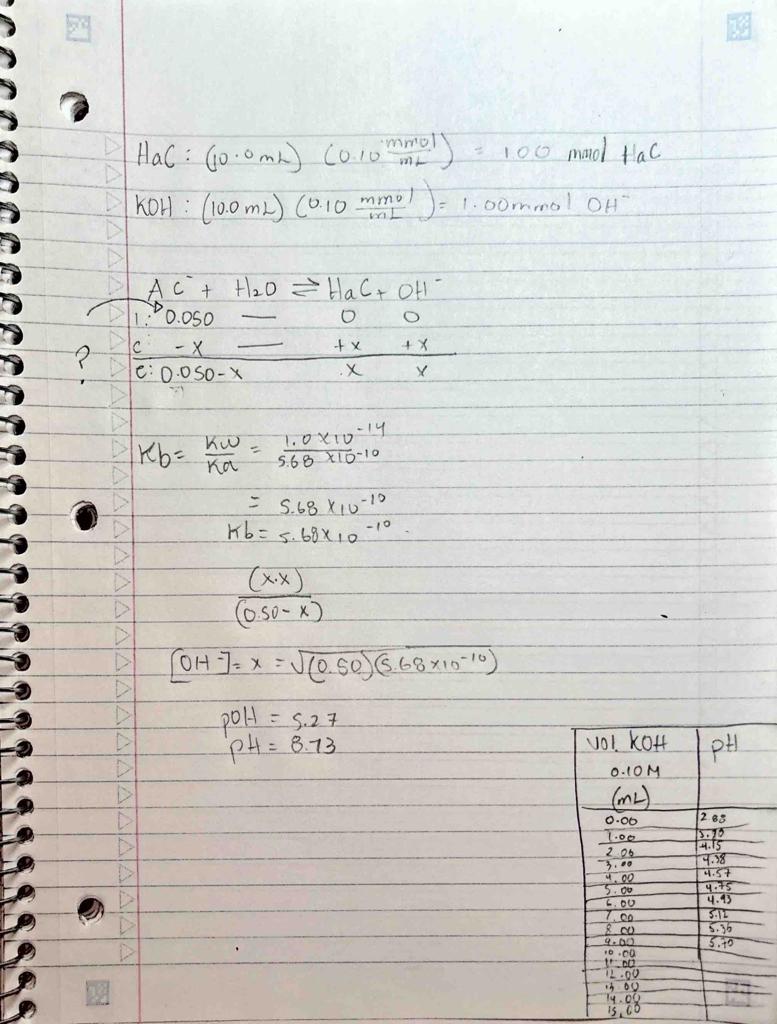 HaC : (10.0 mL) (0.10 mmol/mL) = 1.00 mmol HaC
KOH : (10.0 mL) (0.10 mmol/mL) = 1.00 mmol OH⁻
AC⁻ + H2O ⇌ HaC + OH⁻
I: 0.050 — 0 0
C: -x — +x +x
?
E: 0.050-x x x
Kb = Kw/Ka = 1.0 x 10⁻¹⁴/5.68 x 10⁻¹⁰
= 5.68 x 10⁻¹⁰
Kb = 5.68 x 10⁻¹⁰
(x.x)/(0.50 - x)
[OH⁻] = x = √(0.50)(5.68 x 10⁻¹⁰)
pOH = 5.27
pH = 8.73
Vol. KOH pH
0.10 M
(mL)
0.00 2.88
1.00 3.90
2.00 4.15
3.00 4.38
4.00 4.57
5.00 4.75
6.00 4.93
7.00 5.12
8.00 5.36
9.00 5.70
10.00
11.00
12.00
13.00
14.00
15.00